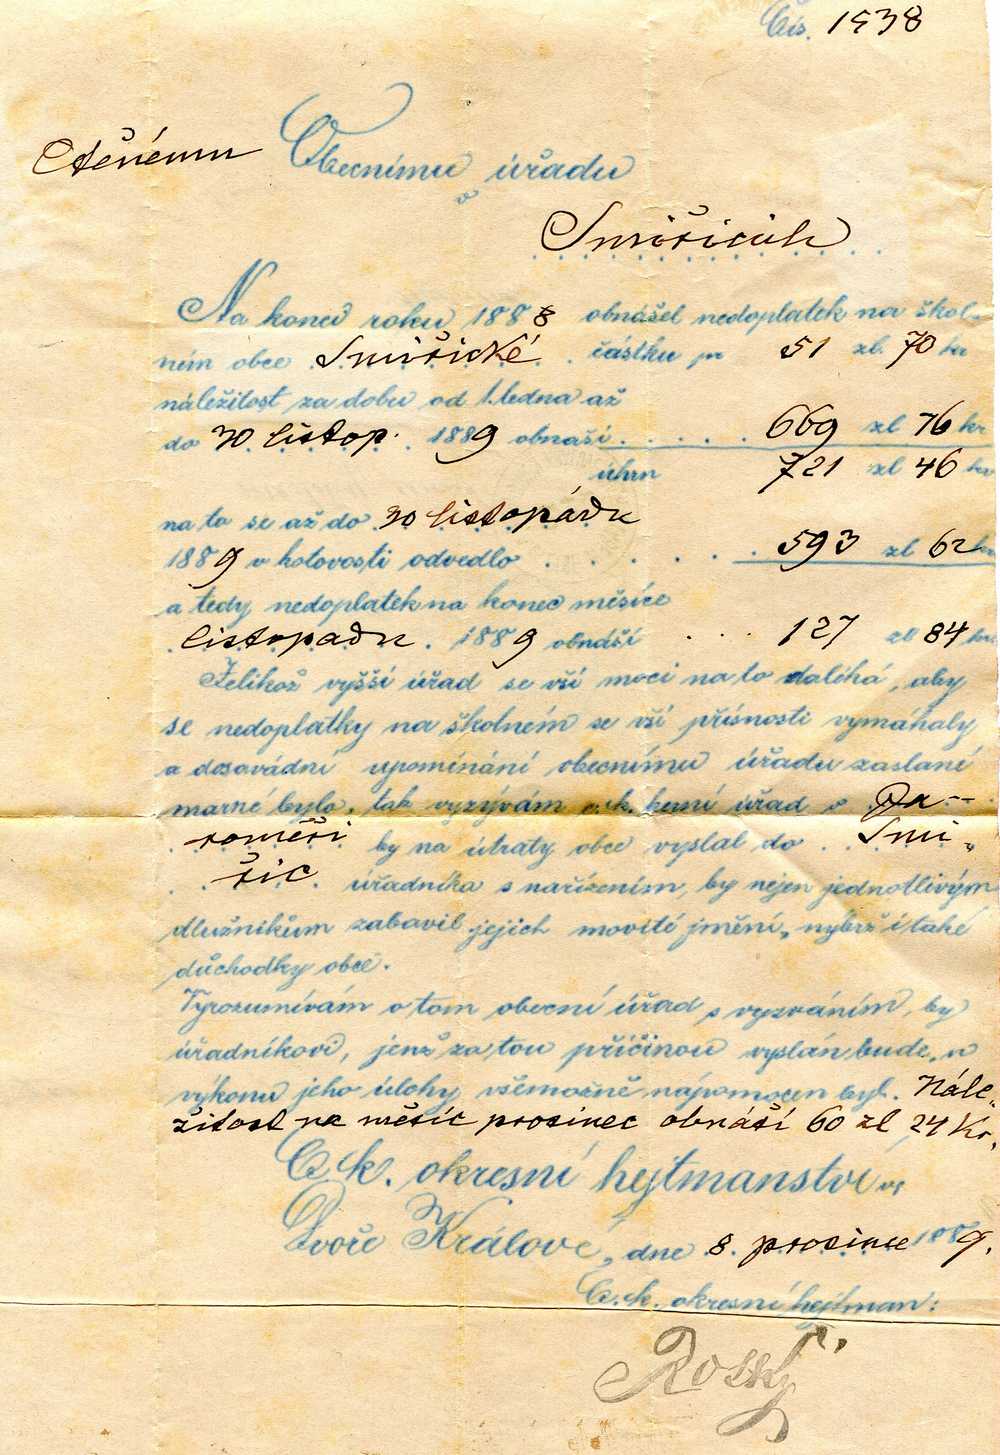 Čís. 1938
Ctěnému Obecnímu úřadu
v
Smiřicích
Na konci roku 1888 obnášel nedoplatek na škol-
ném obce Smiřické částku pr 51 zl. 70 kr
náležitost za dobu od 1. ledna až
do 30 listop. 1889 obnáší . . . . . 669 zl 76 kr
úhrn 721 zl 46 kr
na to se až do 30 listopadu
1889 v hotovosti odvedlo . . . . . 593 zl 62 kr
a tedy nedoplatek na konec měsíce
listopadu . 1889 obnáší . . . 127 zl 84 kr.
Jelikož vyšší úřad se vší mocí na to doléhá, aby
se nedoplatky na školném se vší přísností vymáhaly
a dosavádní upomínání obecnímu úřadu zaslané
marné bylo, tak vyzývám c. k. berní úřad v Ja-
roměři by na útraty obce vyslal do Smi-
řic úřadníka s nařízením, by nejen jednotlivým
dlužníkům zabavil jejich movité jmění, nýbrž i také
důchodky obce.
Vyrozumívám o tom obecní úřad s vyzváním, by
úřadníkovi, jenž za tou příčinou vyslán bude, u
výkonu jeho úlohy všemožně nápomocen byl. Nále-
žitost na měsíc prosinec obnáší 60 zl 24 Kr.
C. k. okresní hejtmanství ve
Dvoře Králové, dne 8. prosince 1889.
C. k. okresní hejtman: